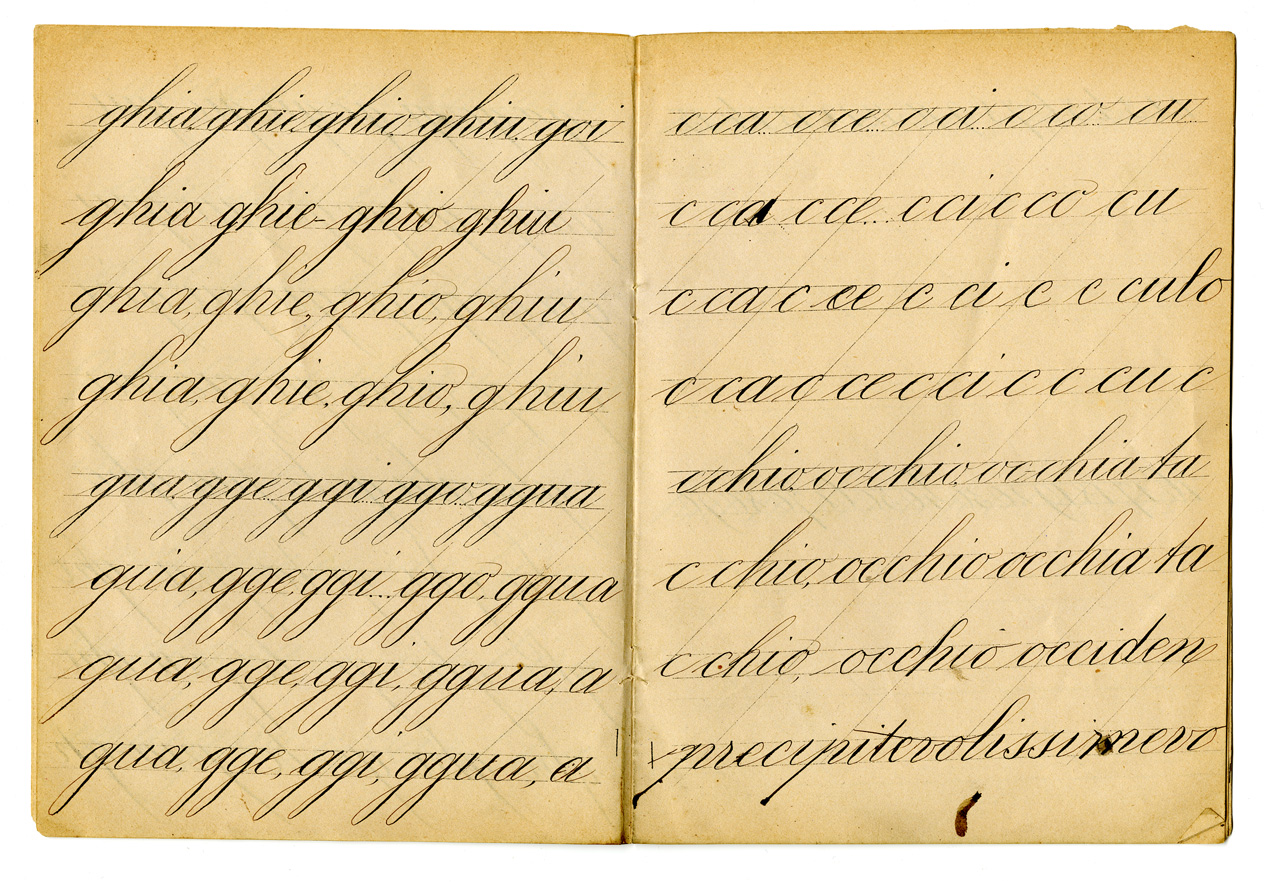 ghia ghie ghio ghiu goi
ghia ghie- ghio ghiu
ghia, ghie, ghio, ghiu
ghia, ghie, ghio, ghiu
gua gge ggi ggo ggua
gua, gge, ggi... ggo, ggua
gua, gge, ggi, ggua, a
gua, gge, ggi, ggua, a
c ca c ce c ci c co cu
c ca c ce c ci c co cu
c ca c ce c ci c c culo
c ca c ce c ci c c cu c
cchio occhio occhia ta
c chio, occhio occhia ta
c chio, occhio occiden
precipitevolissimevo